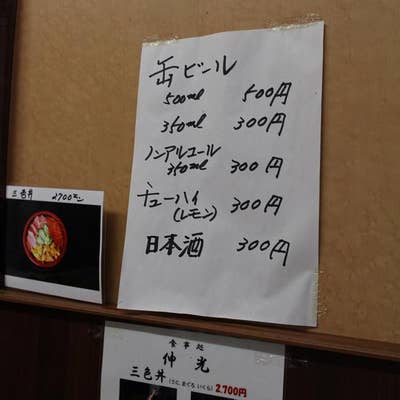 缶ビール
500ml 500円
350ml 300円
ノンアルコール
350ml 300円
チューハイ
(レモン) 300円
日本酒 300円
三色丼 2700円
食事処
伸光
三色丼 (うに まぐろ いくら) 2,700円